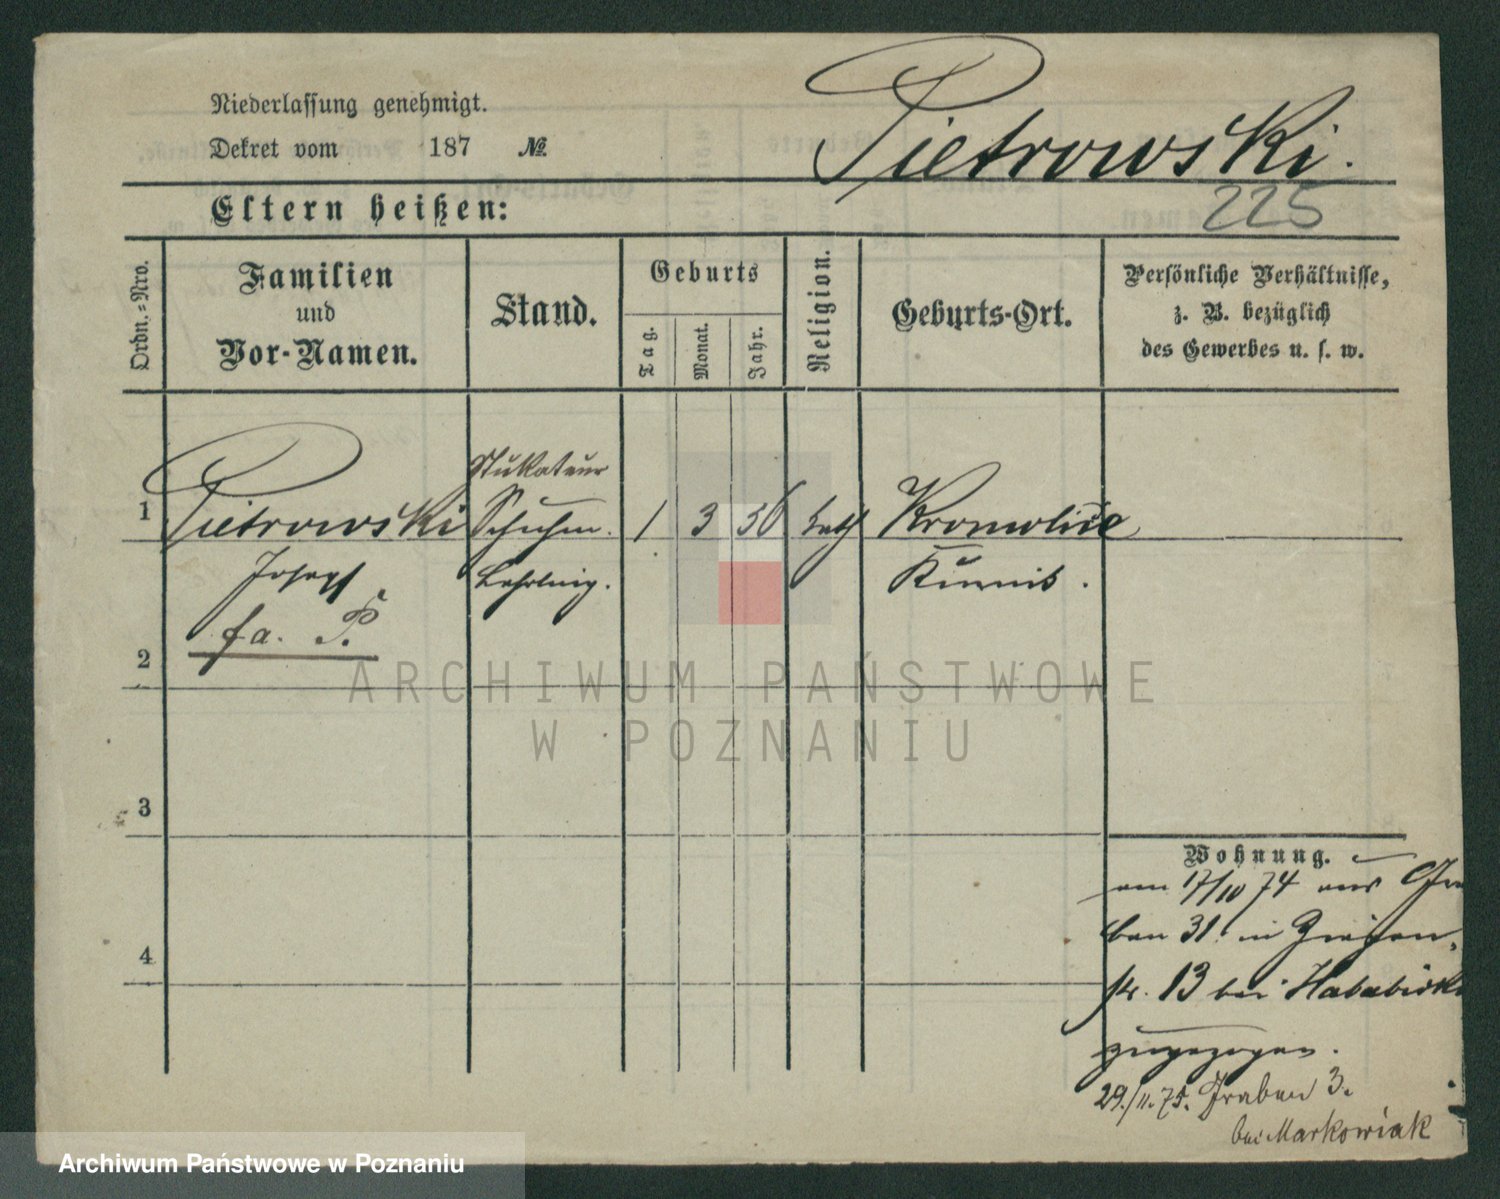 Niederlassung genehmigt.
Dekret vom 187 №
Pietrowski.
225
Eltern heißen:
Ordn.-Nro.
Familien
und
Vor-Namen.
Stand.
Geburts
Tag.
Monat.
Jahr.
Religion.
Geburts-Ort.
Persönliche Verhältnisse,
z. B. bezüglich
des Gewerbes u. s. w.
Stukateur
1 Pietrowski Schuhm. 1 3 56 kath Kromolice
Joseph Lehrling. Kurnik.
fa. P.
2
ARCHIWUM PAŃSTWOWE
W POZNANIU
3
4
Wohnung.
am 17/10 74 aus Gra
ben 31. in
str. 13 bei
zugezogen.
29./11.75. Graben 3.
bei Markowiak
Archiwum Państwowe w Poznaniu